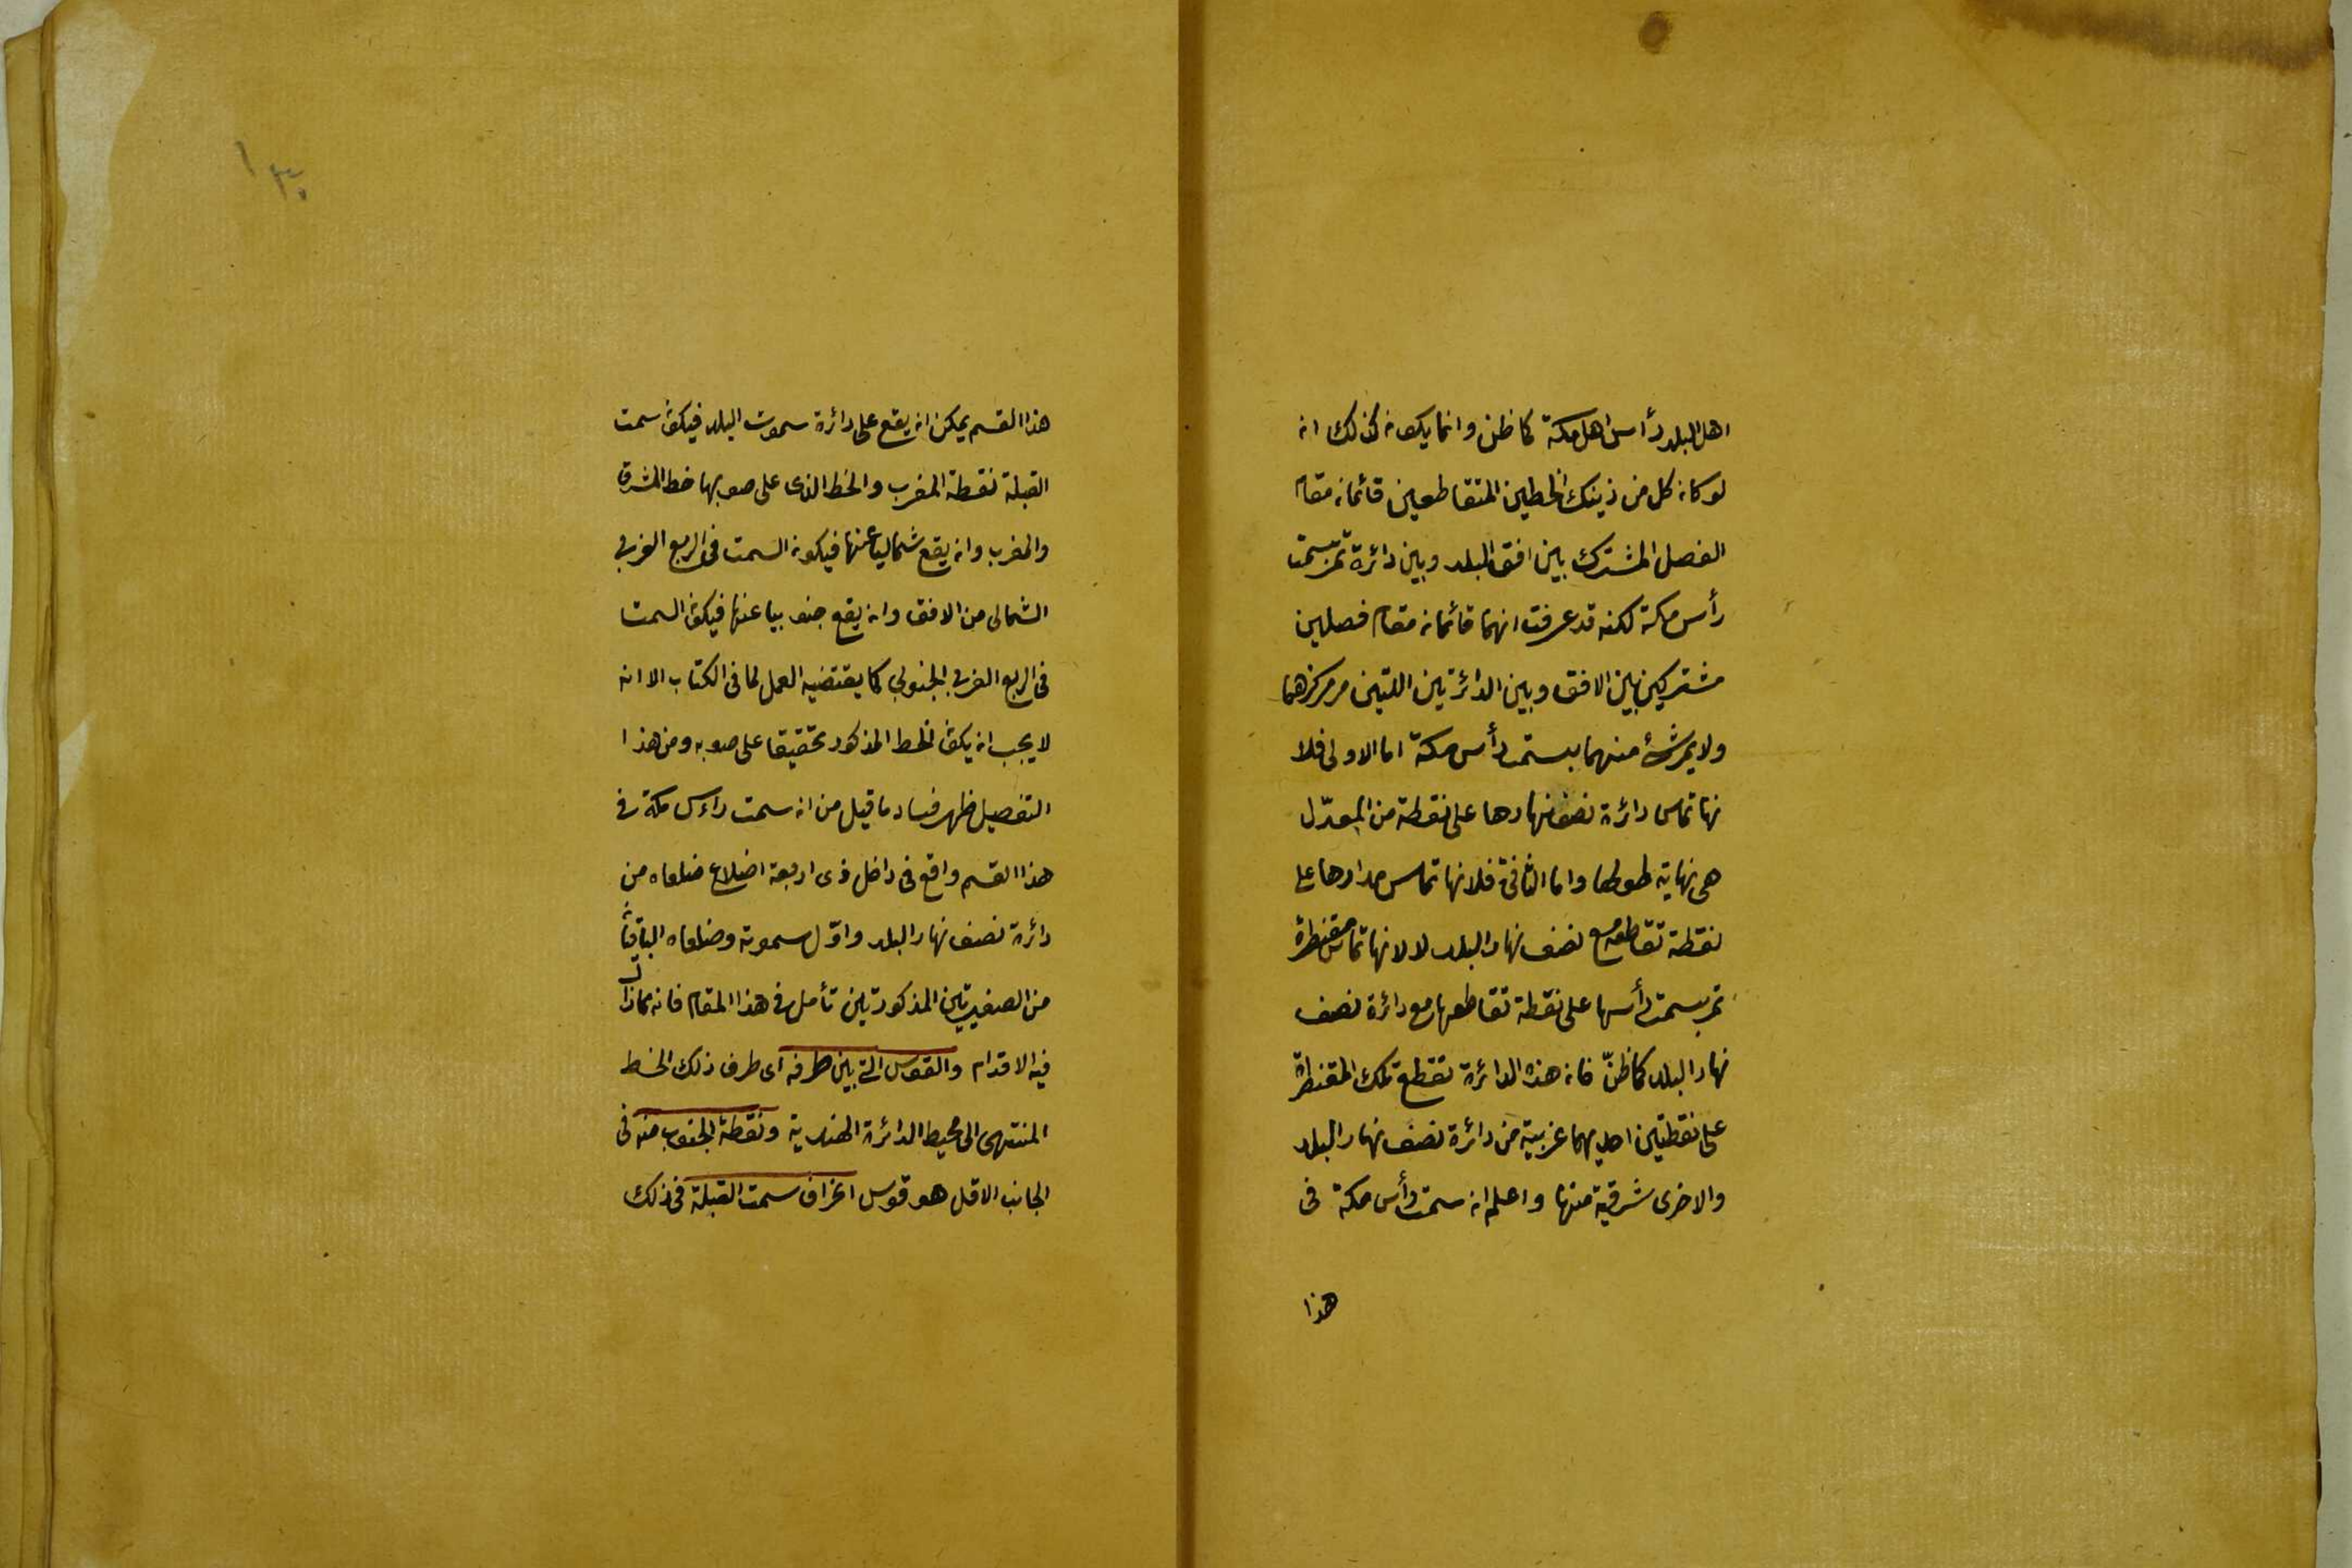 اهل البلد رأس اهل مكة كما ظن وانما يكون كذلك ان
لو كان كل من ذينك الخطين المتقاطعين قائمان مقام
الفصل المشترك بين افق البلد وبين دائرة تمر بسمت
رأس مكة لكنه قد عرفت انهما قائمان مقام فصلين
مشتركين بين الافق وبين الدائرتين اللتين مر مركزهما
ولا يمر شئ منهما بسمت رأس مكة اما الاولى فلا
نها تماس دائرة نصف نهارها على نقطة من المعدّل
هى نهاية طولها واما الثانية فلانها تماس مدارها على
نقطة تقاطعه مع نصف نهار البلد لا لانها تماس مقنطرة
تمر بسمت رأسها على نقطة تقاطعها مع دائرة نصف
نهار البلد كما ظنّ فان هذه الدائرة تقطع تلك المقنطرة
على نقطتين احديهما غربية من دائرة نصف نهار البلد
والاخرى شرقية منها واعلم ان سمت رأس مكة فى
هذا
١٣٠
هذا القسم يمكن ان يقع على دائرة سموت البلد فيكون سمت
القبلة نقطة المغرب والخط الذى على صوبها خط المشرق
والمغرب وان يقع شماليا عنها فيكون السمت فى الربع الغربى
الشمالى من الافق وان يقع جنوبيا عنها فيكون السمت
فى الربع الغربى الجنوبى كما يقتضيه العمل لما فى الكتاب الا انه
لا يجب ان يكون الخط المذكور تحقيقا على صوبه ومن هذا
التفصيل ظهر فساد ما قيل من ان سمت راءس مكة فى
هذا القسم واقع فى داخل ذى اربعة اضلاع ضلعاه من
دائرة نصف نهار البلد واوّل سموته وضلعاه الباقيان
من الصغيرتين المذكورتين تأمل فى هذا المقام فانه مما زلّ
فيه الاقدام والقوس التى بين طرفه اى طرف ذلك الخط
المنتهى الى محيط الدائرة الهندية ونقطة الجنوب منه فى
الجانب الاقل هو قوس انحراف سمت القبلة فى ذلك